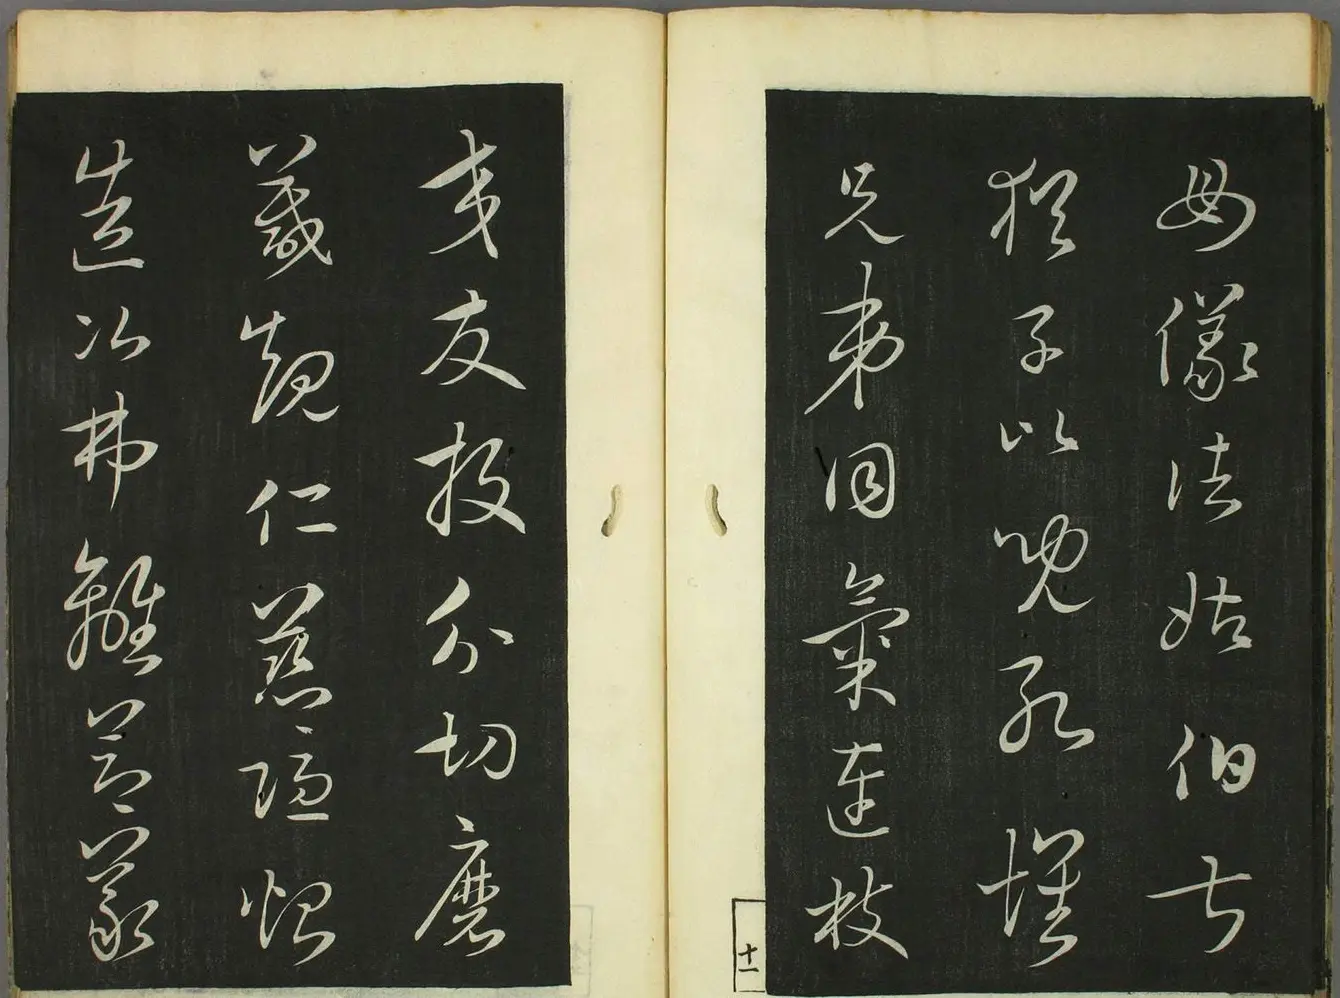 母儀諸姑伯叔
猶子比兒孔懷
兄弟同氣連枝
十一
交友投分切磨
箴規仁慈隱惻
造次弗離節義